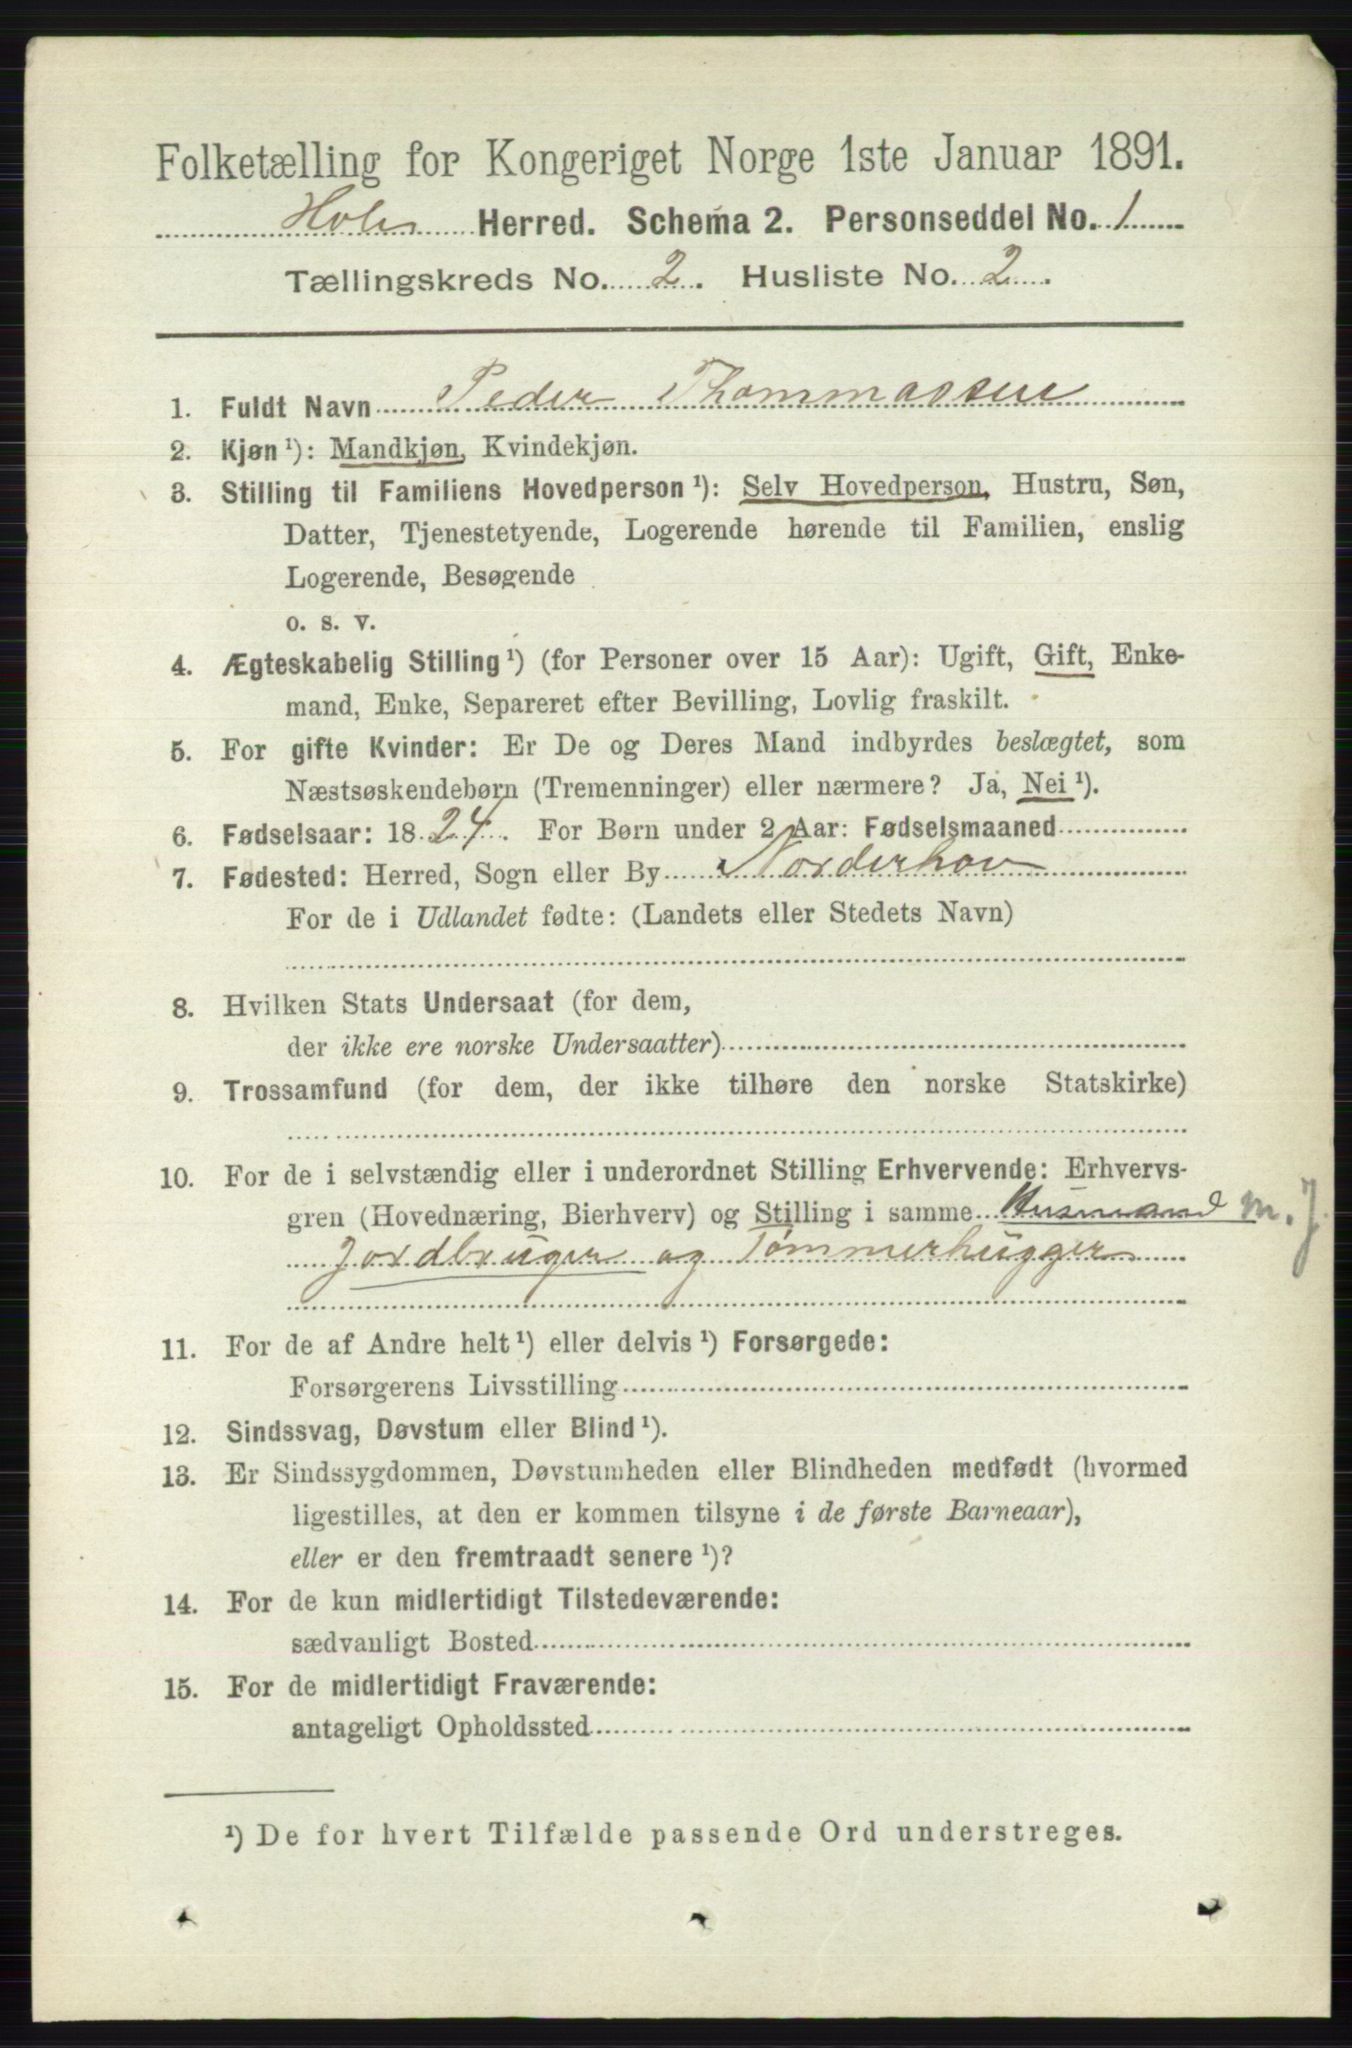 Folketælling for Kongeriget Norge 1ste Januar 1891.
Hole Herred. Schema 2. Personseddel No. 1
Tællingskreds No. 2. Husliste No. 2.
1. Fuldt Navn Peder Thommassen
2. Kjøn ¹): Mandkjøn, Kvindekjøn.
3. Stilling til Familiens Hovedperson ¹): Selv Hovedperson, Hustru, Søn,
Datter, Tjenestetyende, Logerende hørende til Familien, enslig
Logerende, Besøgende
o. s. v.
4. Ægteskabelig Stilling ¹) (for Personer over 15 Aar): Ugift, Gift, Enke-
mand, Enke, Separeret efter Bevilling, Lovlig fraskilt.
5. For gifte Kvinder: Er De og Deres Mand indbyrdes beslægtet, som
Næstsøskendebørn (Tremenninger) eller nærmere? Ja, Nei ¹).
6. Fødselsaar: 1824. For Børn under 2 Aar: Fødselsmaaned
7. Fødested: Herred, Sogn eller By Norderhov
For de i Udlandet fødte: (Landets eller Stedets Navn)
8. Hvilken Stats Undersaat (for dem,
der ikke ere norske Undersaatter)
9. Trossamfund (for dem, der ikke tilhøre den norske Statskirke)
10. For de i selvstændig eller i underordnet Stilling Erhvervende: Erhvervs-
gren (Hovednæring, Bierhverv) og Stilling i samme Husmand m. J.
Jordbruger og Tømmerhugger
11. For de af Andre helt ¹) eller delvis ¹) Forsørgede:
Forsørgerens Livsstilling
12. Sindssvag, Døvstum eller Blind ¹).
13. Er Sindssygdommen, Døvstumheden eller Blindheden medfødt (hvormed
ligestilles, at den er kommen tilsyne i de første Barneaar),
eller er den fremtraadt senere ¹)?
14. For de kun midlertidigt Tilstedeværende:
sædvanligt Bosted
15. For de midlertidigt Fraværende:
antageligt Opholdssted
¹) De for hvert Tilfælde passende Ord understreges.